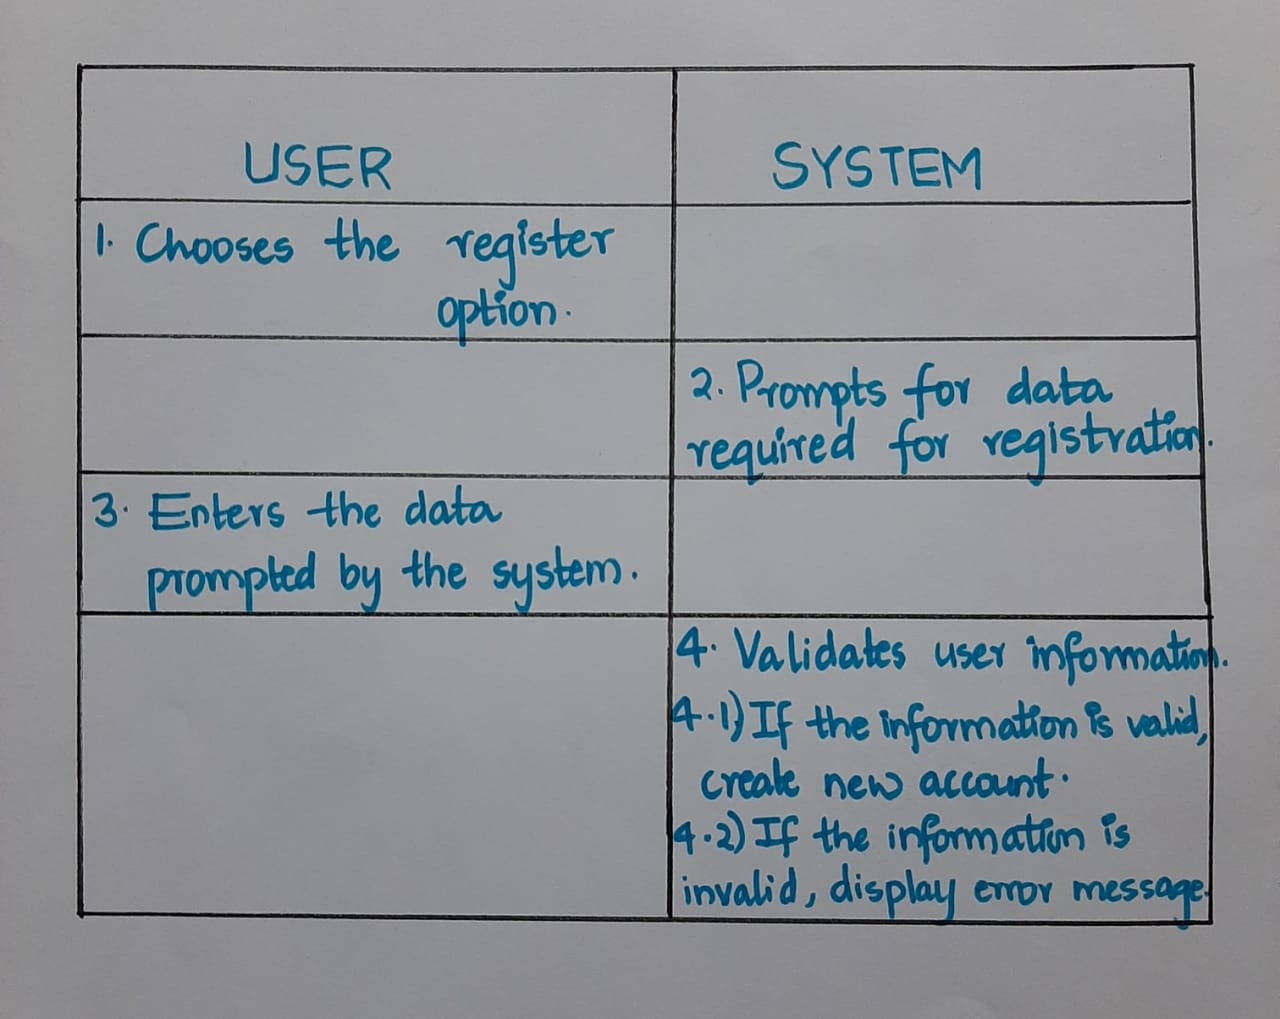 USER
SYSTEM
1. Chooses the register
option.
2. Prompts for data
required for registration.
3. Enters the data
prompted by the system.
4. Validates user information.
4.1) If the information is valid,
create new account.
4.2) If the information is
invalid, display error message.